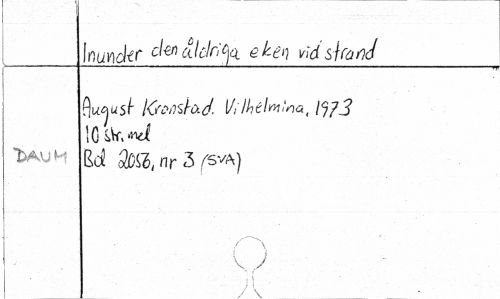 Inunder den åldriga eken vid strand
August Kronstad. Vilhelmina, 1973
10 str. mel
DAUM Bd 2056, nr 3 (SVA)